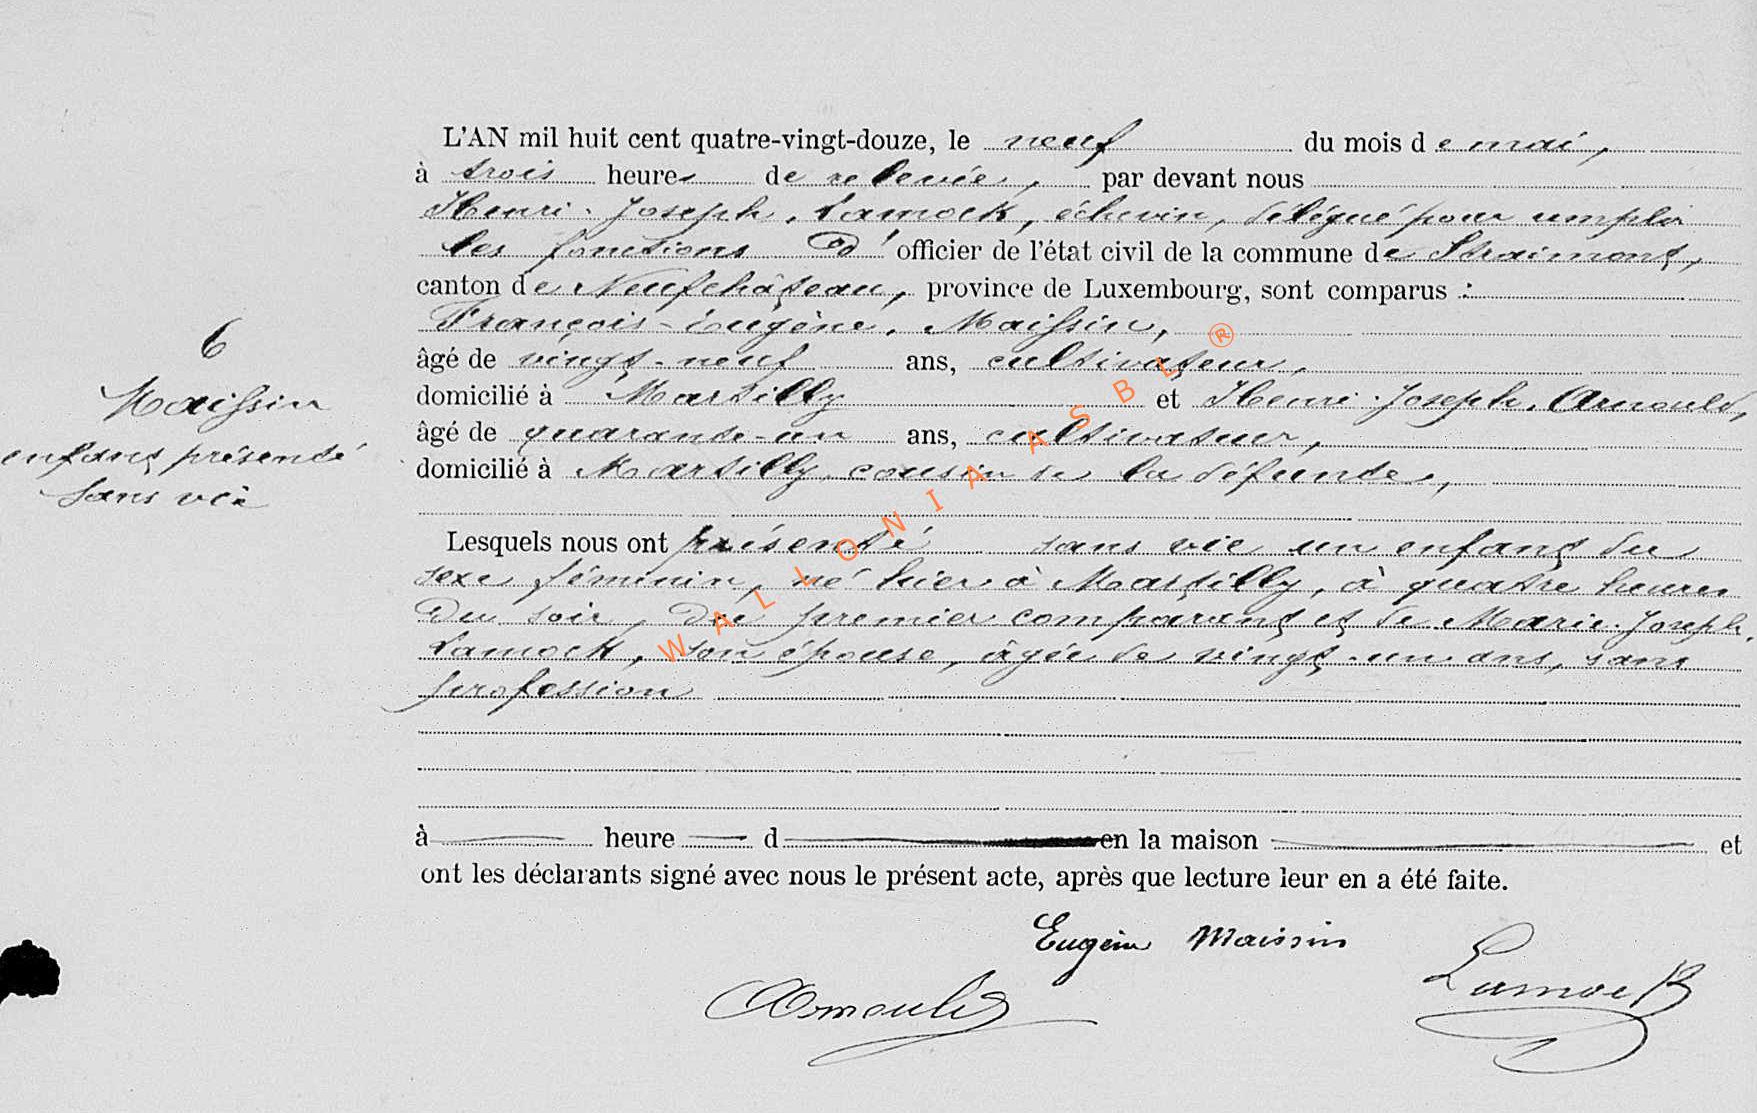 L'AN mil huit cent quatre-vingt-douze, le neuf du mois de mai,
à trois heures de relevée, par devant nous
Henri-Joseph Lamock, échevin, délégué pour remplir
les fonctions d'officier de l'état civil de la commune de Straimont,
canton de Neufchâteau, province de Luxembourg, sont comparus :
François-Eugène Maissin,
âgé de vingt-neuf ans, cultivateur,
domicilié à Martilly et Henri-Joseph Arnould,
âgé de quarante-un ans, cultivateur,
domicilié à Martilly, cousin de la défunte,
Lesquels nous ont présenté sans vie un enfant du
sexe féminin, né hier à Martilly, à quatre heures
du soir, du premier comparant et de Marie-Joseph
Lamock, son épouse, âgée de vingt-un ans, sans
profession
à heure d en la maison et
ont les déclarants signé avec nous le présent acte, après que lecture leur en a été faite.
Eugène Maissin
Arnould
Lamock
6
Maissin
enfant présenté
sans vie
WALLONIA ASBL ®